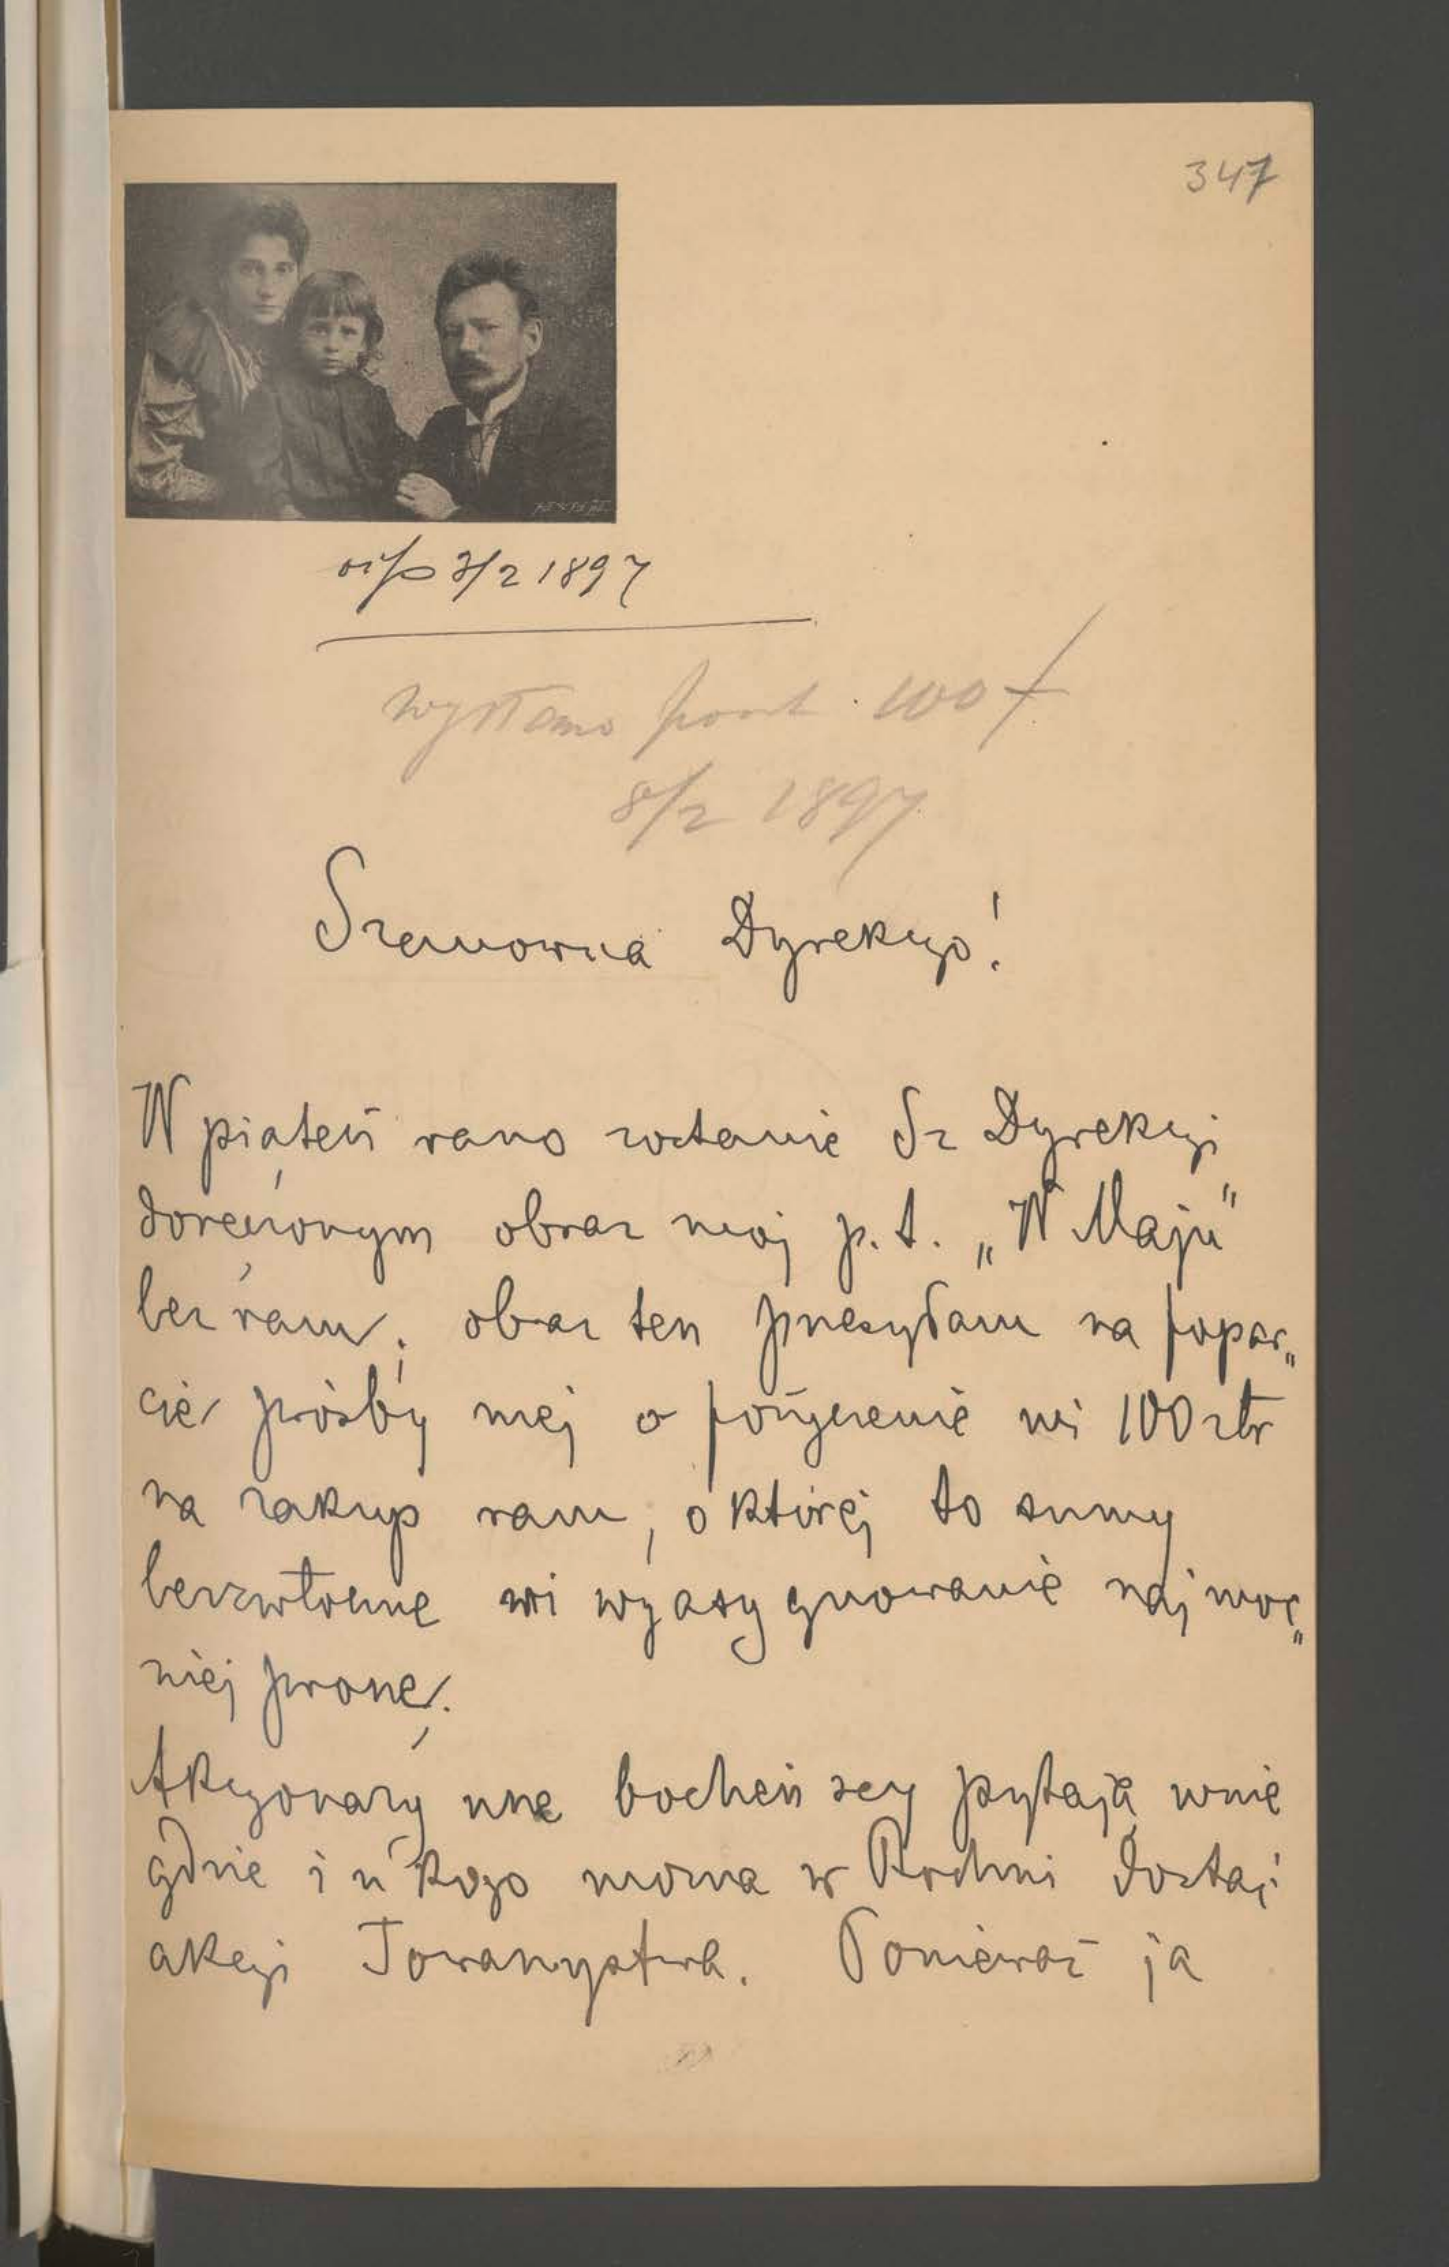 347
3/2 1897
wysłano 100 f
8/2 1897
Szanowna Dyrekcyo!
W piątek rano zostanie Sz Dyrekcyi
doręczonym obraz mój p. t. „W Maju"
bez ram; obraz ten przesyłam na popar„
cie prośby mej o pożyczenie mi 100 złr
na zakup ram, o której to sumy
bezzwłoczne mi wyasygnowanie najmoc„
niej proszę.
Akcyonaryusze bocheńscy pytają mnie
gdzie i u kogo można w Bochni dostać
akcyi Towarzystwa. Ponieważ ja